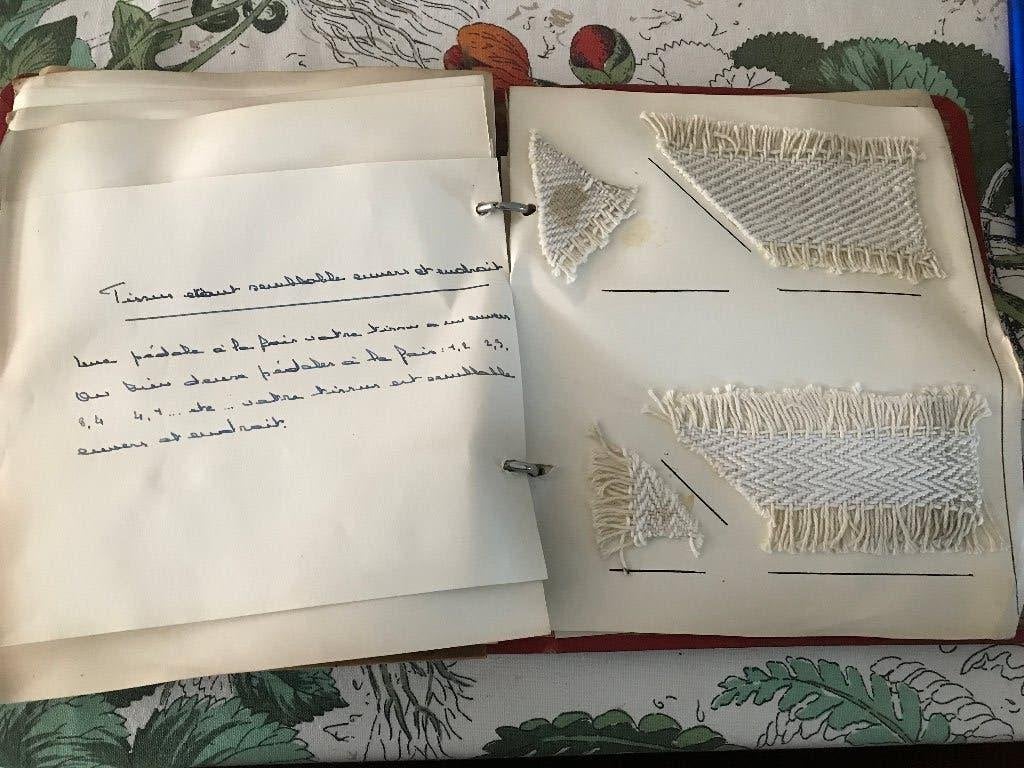 Tissus étant semblable envers et endroit
Une pédale à la fois votre tissu a un envers
Ou bien deux pédales à la fois : 1,2 2,3,
3,4 4,1 ... etc ... votre tissus est semblable
envers et endroit.